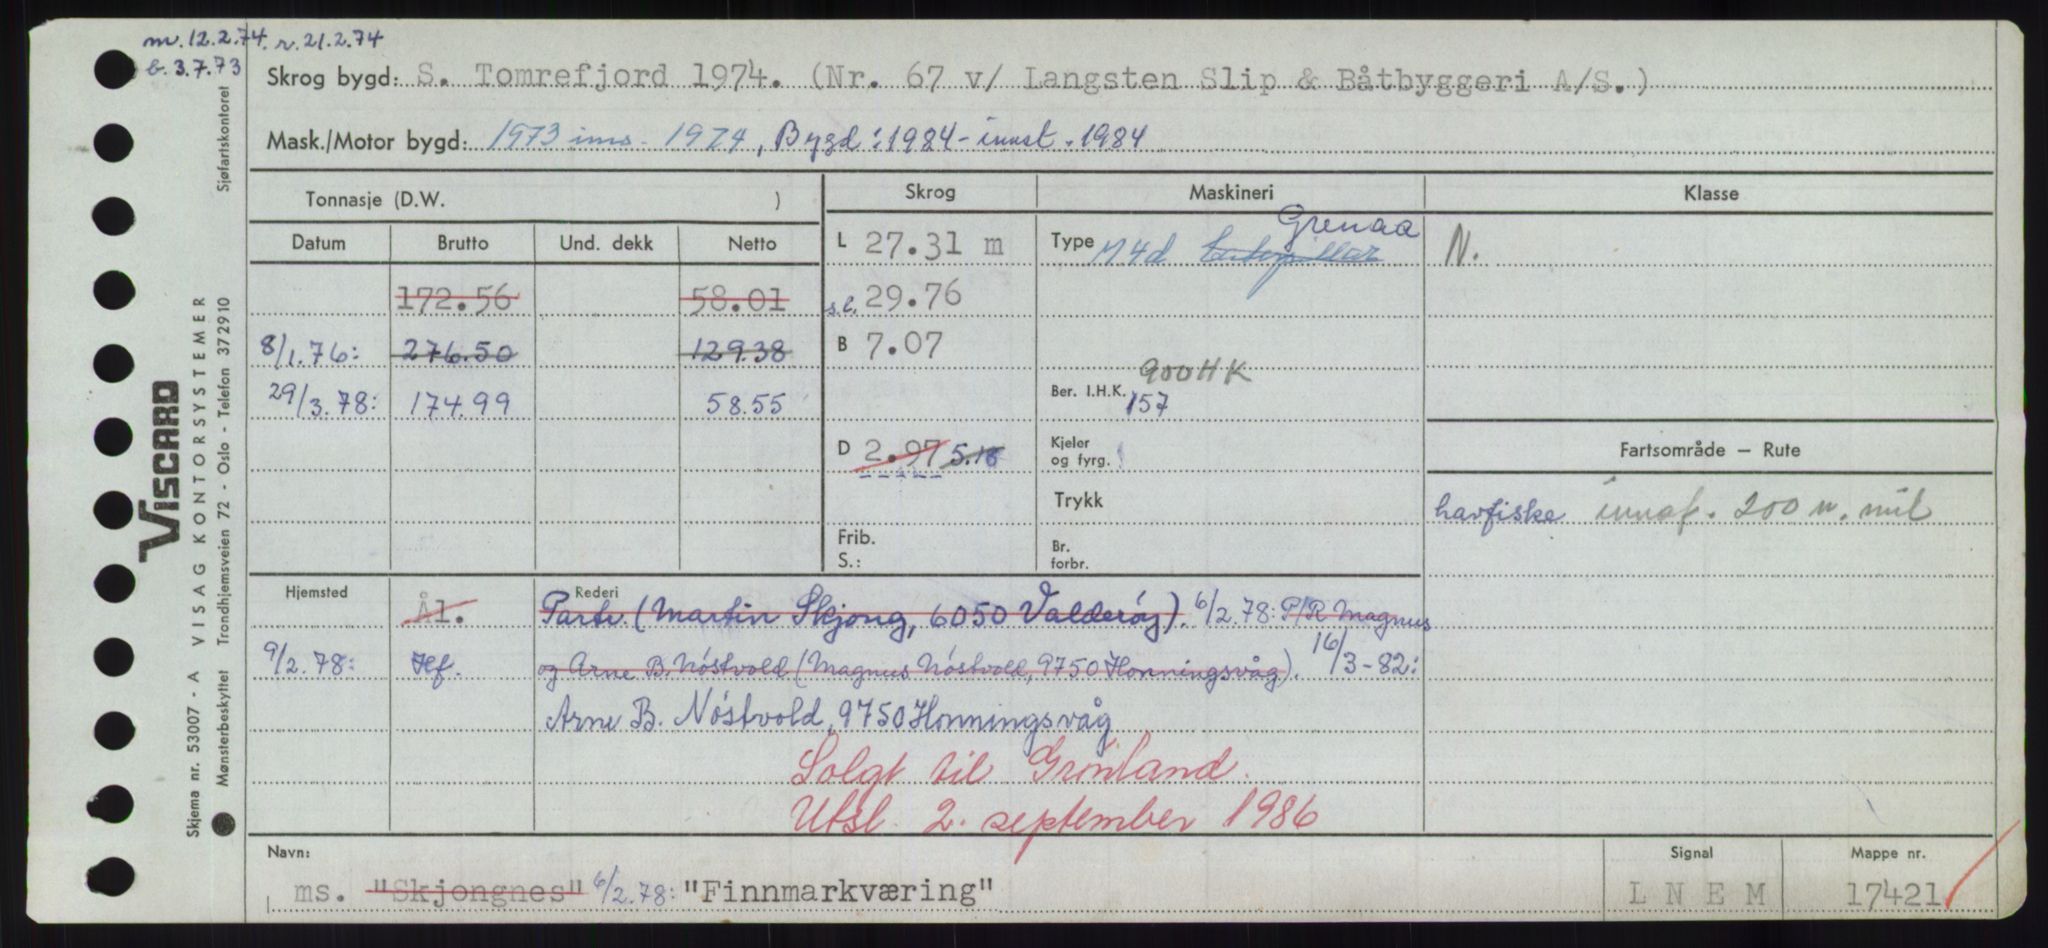 m. 12.2.74. r. 21.2.74
b. 3.7.73
Skrog bygd: S. Tomrefjord 1974. (Nr. 67 v/ Langsten Slip & Båtbyggeri A/S.)
Mask./Motor bygd: 1973 inns. 1974, Bygd: 1984 - innst. 1984
Tonnasje (D.W. )
Skrog
Maskineri
Klasse
Datum Brutto Und. dekk Netto
L 27.31 m
Type M4d Caterpillar Grenaa
N.
172.56 58.01
s.l. 29.76
8/1.76: 276.50 129.38
B 7.07
29/3.78: 174.99 58.55
900 HK
Ber. I.H.K. 157
D 2.97 5.18
Kjeler
og fyrg.
Fartsområde — Rute
Trykk
havfiske innaf. 200 n. mil
Frib.
S.:
Br.
forbr.
Hjemsted Rederi
Ål. Partr. (Martin Skjong, 6050 Valderøy). 6/2.78: P/R Magnus
9/2.78: Hf. og Arne B. Nøstvold (Magnus Nøstvold, 9750 Honningsvåg). 16/3-82:
Arne B. Nøstvold, 9750 Honningsvåg
Solgt til Grønland.
Utsl. 2. september 1986
Navn: Signal Mappe nr.
ms. "Skjongnes" 6/2.78: "Finnmarkværing" L N E M 17421
Skjema nr. 53007 - A VISAG KONTORSYSTEMER
VISCARD
Mønsterbeskyttet Trondhjemsveien 72 - Oslo - Telefon 372910
Sjøfartskontoret